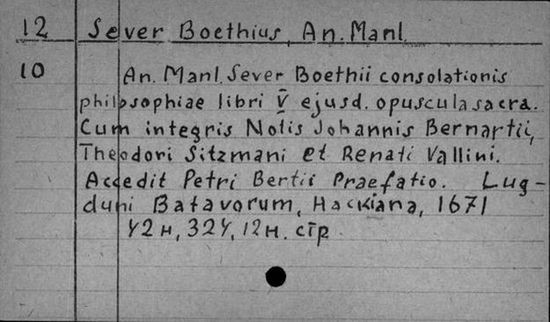 12 Sever Boethius, An. Manl.
10 An. Manl. Sever Boethii consolationis
philosophiae libri V ejusd. opuscula sacra.
Cum integris Notis Johannis Bernartii,
Theodori Sitzmani et Renati Vallini.
Accedit Petri Bertii Praefatio. Lug-
duni Batavorum, Hackiana, 1671
42н, 324, 12н. стр.